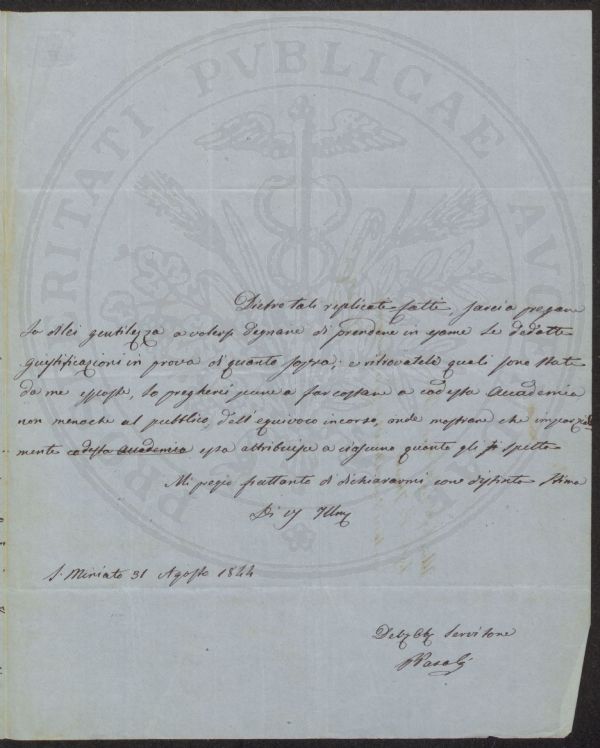 PROSPERITATI PVBLICAE AVGENDAE
Dietro tali replicati fatti, faccia pregare
la di lei gentilezza a volersi degnare di prendere in esame le dedotte
giustificazioni in prova di quanto sopra; e ritrovatele quali sono state
da me esposte, la pregherei pure a far costare a codesta Accademia
non menoche al pubblico, dell'equivoco incorso, onde mostrare che imparzial
mente codesta Accademia essa attribuisce a ciascuno quanto gli spetta
Mi pregio frattanto di dichiararmi con distinta stima
Di
S. Miniato 31 Agosto 1844
Servitore